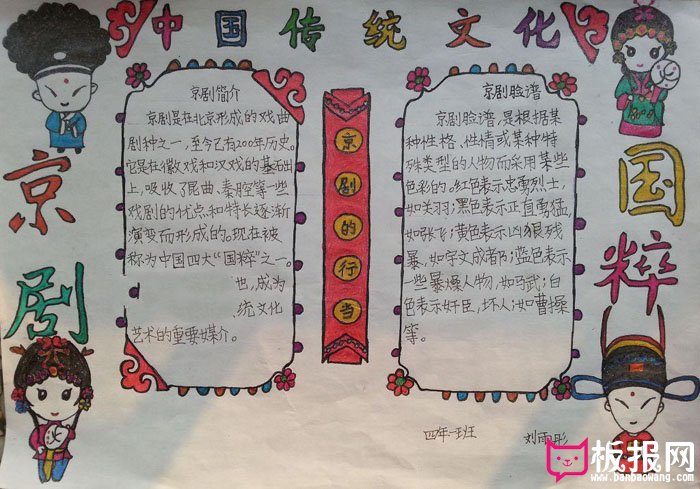 中国传统文化
京剧
国粹
京剧简介
京剧是在北京形成的戏曲
剧种之一,至今已有200年历史。
它是在徽戏和汉戏的基础
上,吸收了昆曲、秦腔等一些
戏剧的优点和特长逐渐
演变而形成的。现在被
称为中国四大“国粹”之一。
也,成为
统文化
艺术的重要媒介。
京剧的行当
京剧脸谱
京剧脸谱,是根据某
种性格、性情或某种特
殊类型的人物而采用某些
色彩的。红色表示忠勇烈士,
如关羽;黑色表示正直勇猛,
如张飞;黄色表示凶狠残
暴,如宇文成者;蓝色表示
一些暴燥人物,如马武;白
色表示奸臣,坏人;如曹操
等。
四年一班
刘雨彤
板报网
www.banbaowang.com